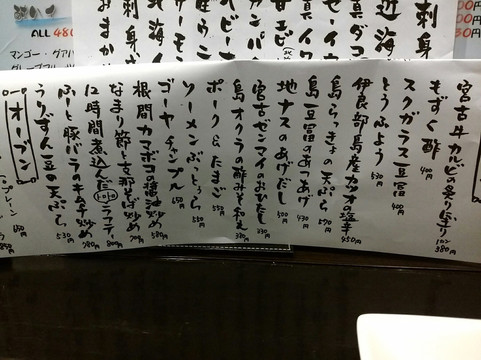 刺身
近海
真ダコ
セーイカ
真イワ
甘エビ
カンパ
宮古牛カルビの炙り寿司 1カン 380円
もずく酢 400円
スクガラス豆富 400円
とうふよう 530円
伊良部島産カツオの塩辛 450円
島らっきょうの天ぷら 570円
島豆富のあつあげ 430円
地ナスのあげだし 500円
宮古ゼンマイのおひたし 330円
島オクラの酢みそ和え 380円
ポーク&たまご 550円
ソーメンぷっとぅる 550円
ゴーヤチャンプル 650円
根間カマボコの醤油炒め 500円
なまり節と支那そば炒め 700円
12時間煮込んだトロトロラフティ 800円
ふーと豚バラのキムチ炒め 780円
うりずん豆の天ぷら 530円
オーブン
ALL 480
マンゴー・グアバ